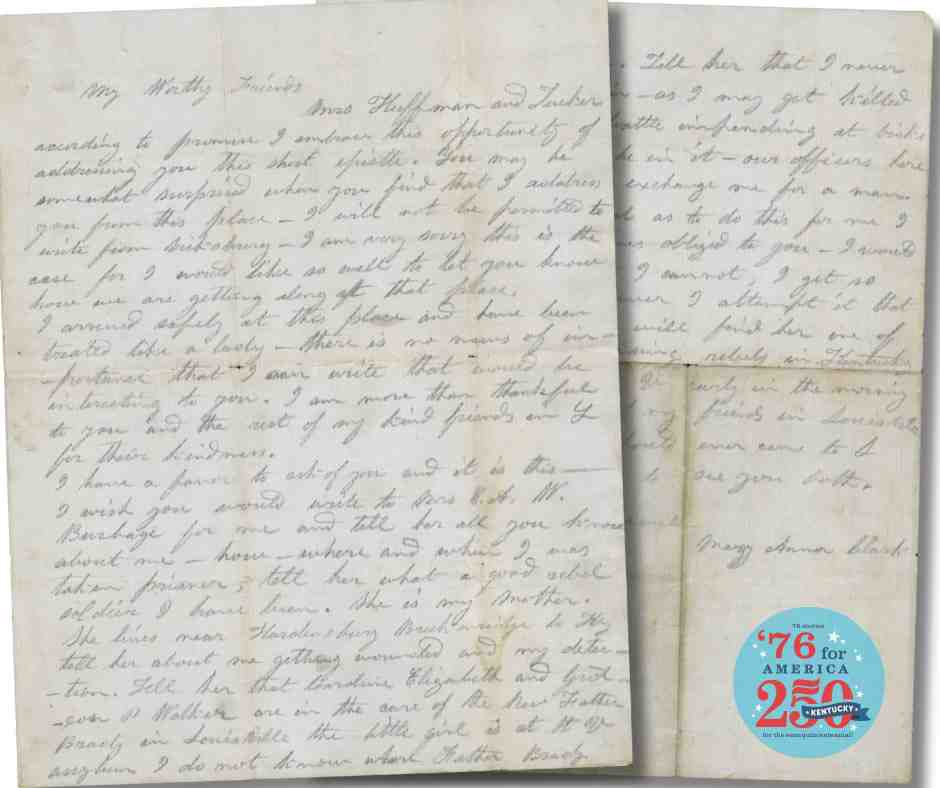 My Worthy Friends
Mrs Huffman and Tucker
according to promise I embrace this opportunity of
addressing you this short epistle. You may be
somewhat surprised when you find that I address
you from this place - I will not be permitted to
write from Vicksburg - I am very sorry this is the
case for I would like so well to let you know
how we are getting along at that place.
I arrived safely at this place and have been
treated like a lady - there is no news of im-
-portance that I can write that would be
interesting to you. I am more than thankful
to you and the rest of my kind friends in L
for their kindness.
I have a favor to ask of you and it is this -
I wish you would write to Mrs E. A. W.
Burbage for me and tell her all you know
about me - how - where and when I was
taken prisoner, tell her what a good rebel
soldier I have been. She is my Mother.
She lives near Hardensburg Breckenridge Co Ky
tell her about me getting wounded and my deten-
-tion. Tell her that Caroline Elizabeth and
P Walker are in the care of the Rev Father
Brady in Louisville the little girl is at the
asylum I do not know where Father Brady
. Tell her that I never
- as I may get killed
battle impending at Vicks
be in it - our officers here
exchange me for a man
as to do this for me I
obliged to you - I would
I cannot, I get so
I attempt it that
will find her one of
rebels in Kentucky
early in the morning
my friends in Louisville
ever come to L
see you both.
Mary Ann Clark
'76 for
AMERICA
250
KENTUCKY
for the semiquincentennial!